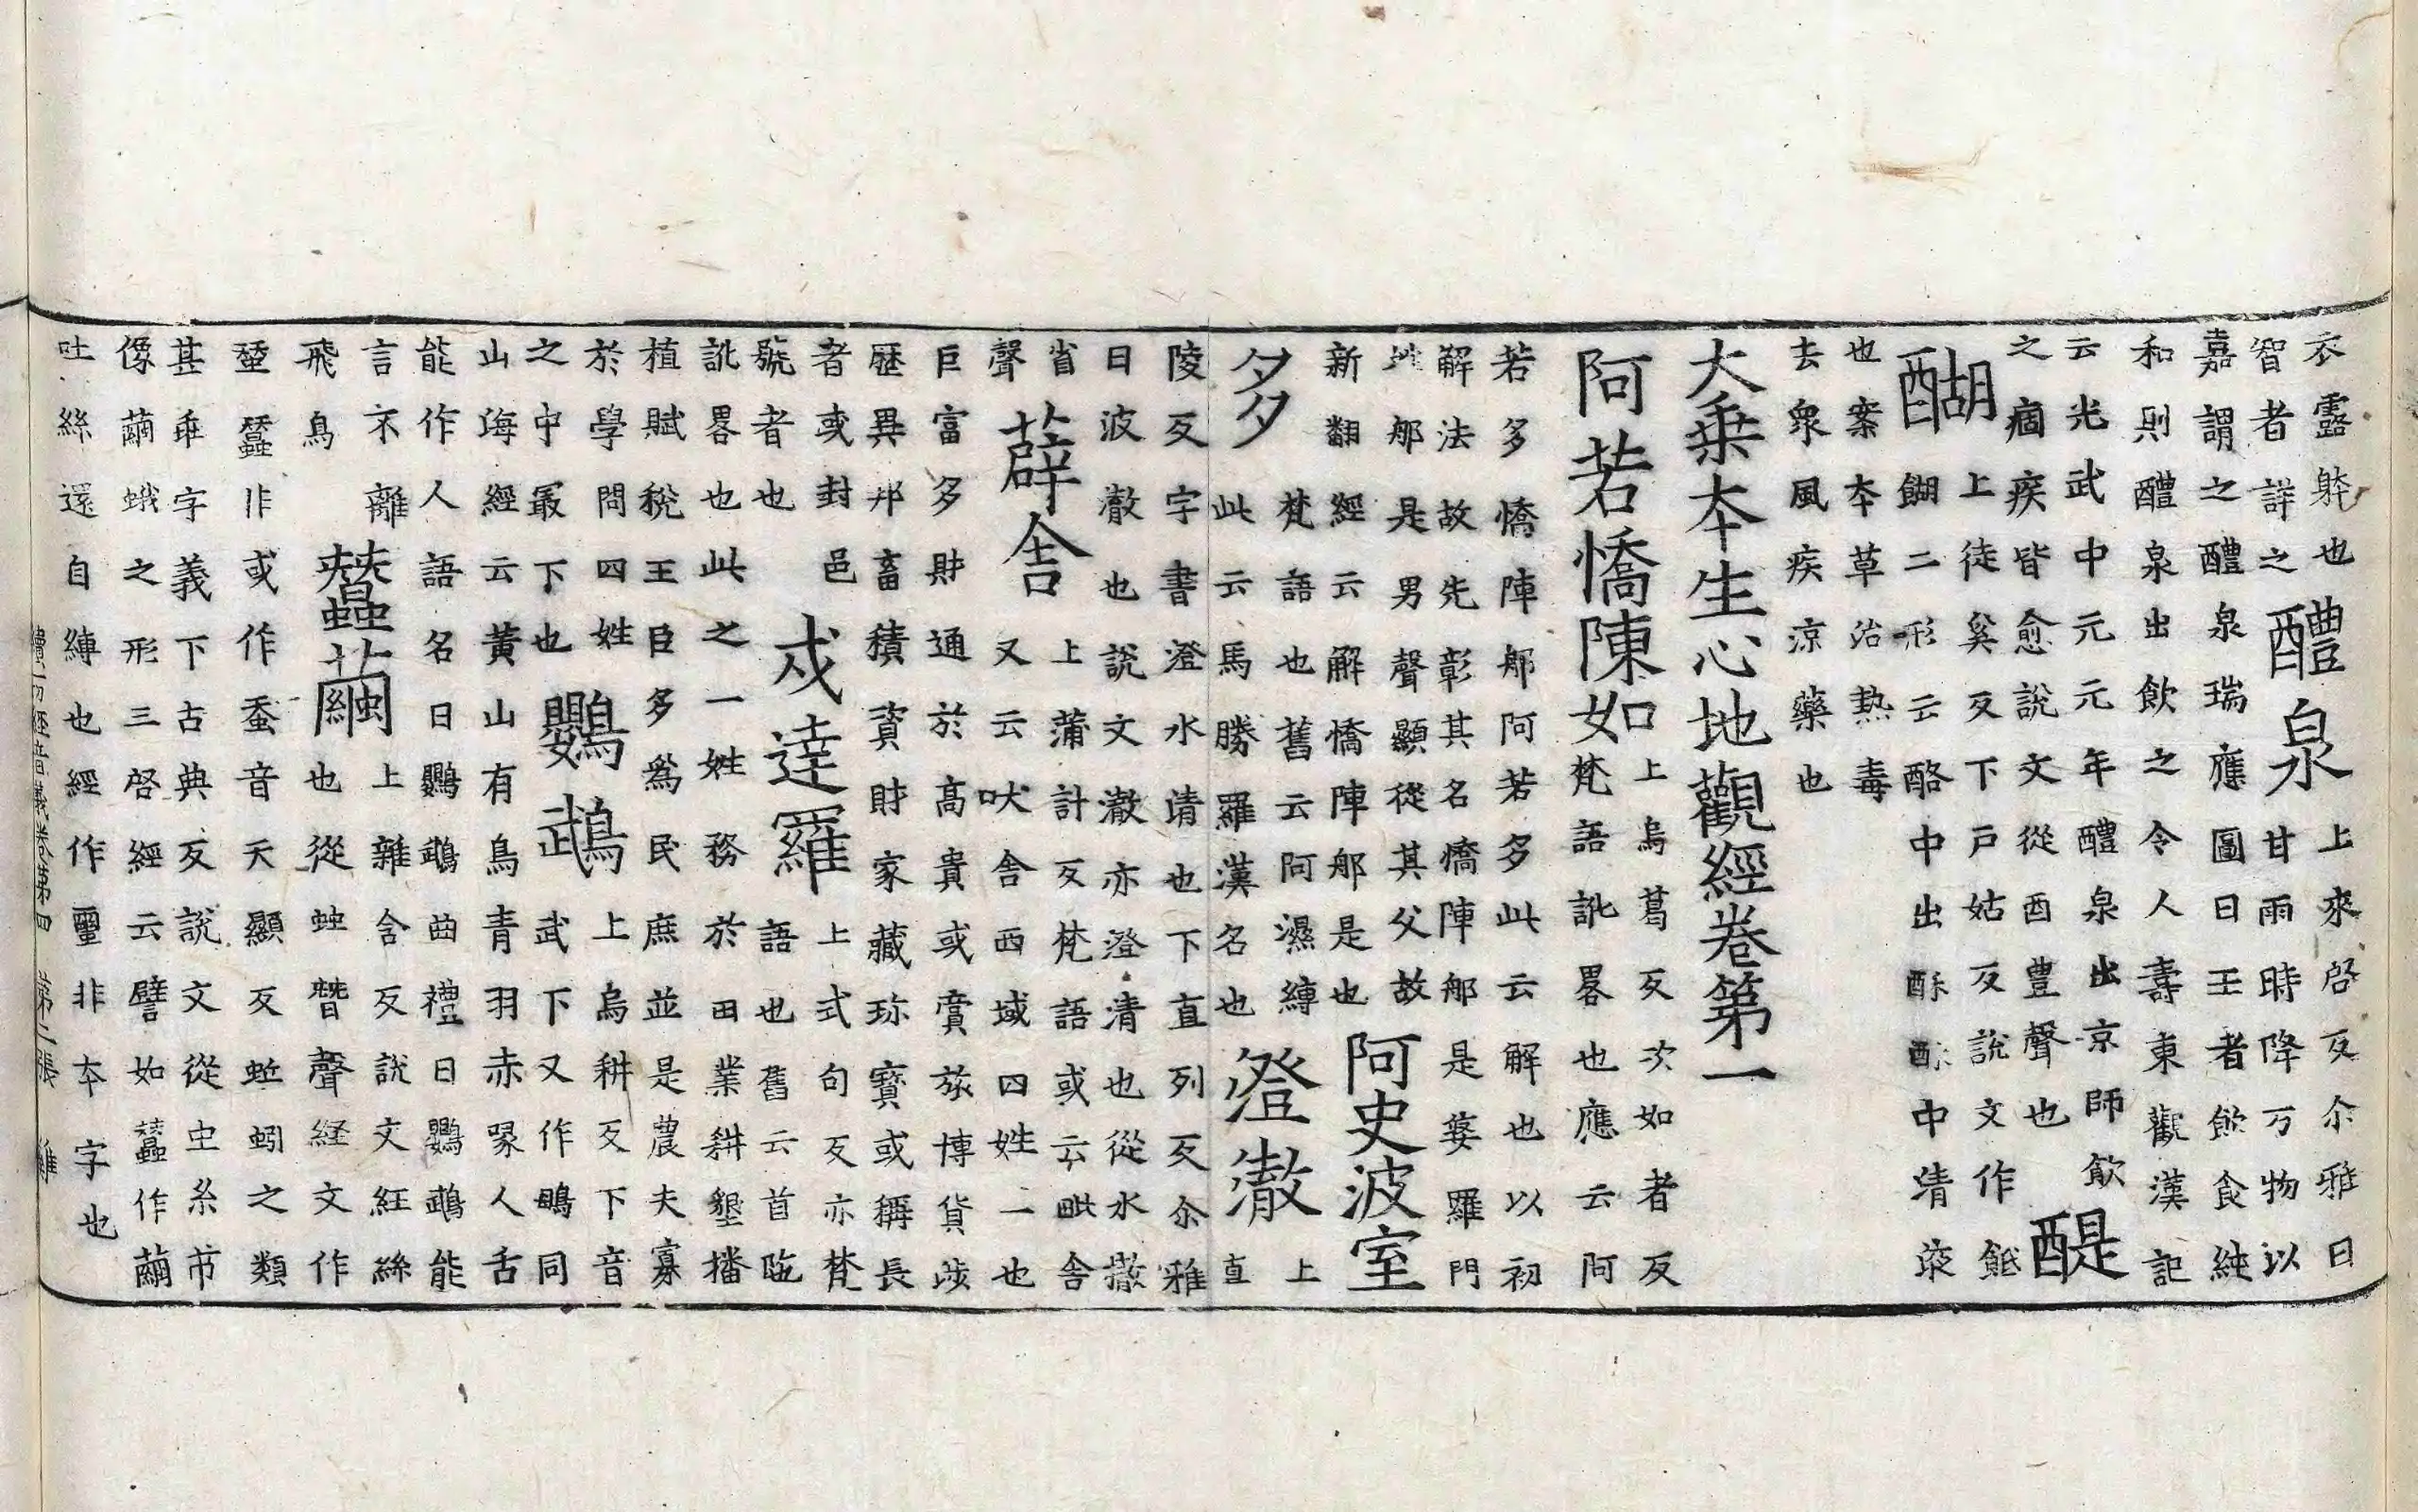 衣露躰也
智者詳之
醴泉
上來啓反尒雅曰
甘雨時降万物以
嘉謂之醴泉瑞應圖曰王者飲食純
和則醴泉出飲之令人壽東觀漢記
云光武中元元年醴泉出京師飲
之痼疾皆愈說文從酉豊聲也
醍醐
上徒奚反下戶姑反說文作䬫
餬二形云酪中出酥酥中清液
也案本草治熱毒
去衆風疾凉藥也
大乗本生心地觀經卷第一
阿若憍陳如
上烏葛反次如者反
梵語訛畧也應云阿
若多憍陣那阿若多此云解也以初
解法故先彰其名憍陣那是婆羅門
姓那是男聲顯從其父故
新翻經云解憍陣那是也
阿史波室多
梵語也舊云阿濕縛
此云馬勝羅漢名也
澄澈
上
直
陵反字書澄水清也下直列反尒雅
日波澈也說文澈亦澄清也從水撤
省
聲
薜舍
上蒲計反梵語或云毗舍
又云吠舍西域四姓一也
巨富多財通於高貴或賞旅博貨涉
歷異邦畜積資財家藏珎寳或稱長
者或封邑
號者也
戍達羅
上式句反亦梵
語也舊云首陁
訛畧也此之一姓務於田業耕墾播
植賦稅王臣多爲民庶並是農夫寡
於學問四姓
之中最下也
鸚鵡
上烏耕反下音
武下又作䳇同
山海經云黃山有鳥青羽赤喙人舌
能作人語名曰鸚鵡曲禮曰鸚鵡能
言不離
飛鳥
蠶繭
上雜含反說文紝絲
也從䖵朁聲経文作
蝅蠺非或作蚕音天顯反蚯蚓之類
甚乖字義下古典反說文從虫糸芇
像繭蛾之形三啓經云譬如蠶作繭
吐絲還自縛也經作壐非本字也
續一切經音義卷第四 第二張 雞